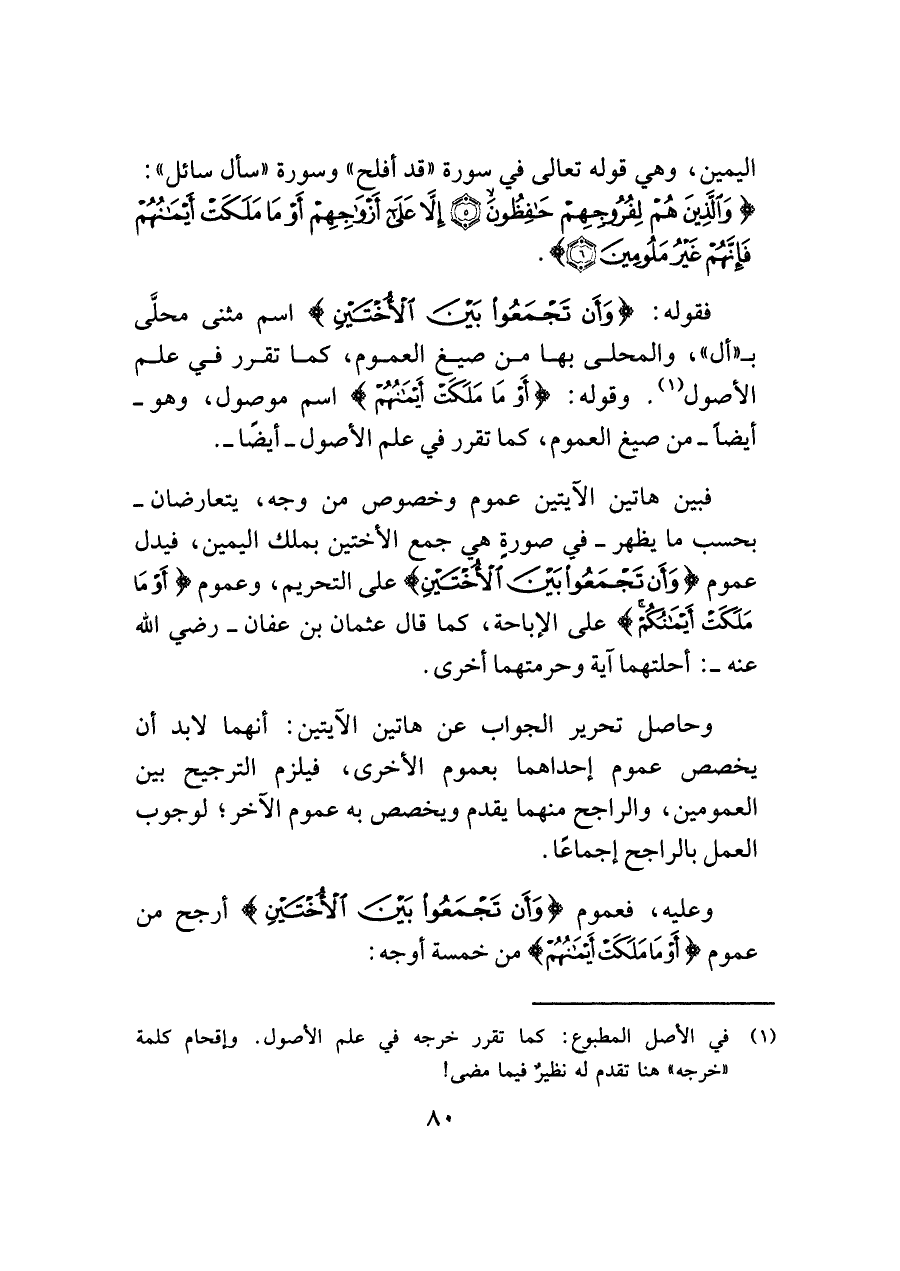 اليمين، وهي قوله تعالى في سورة «قد أفلح» وسورة «سأل سائل»:
﴿وَٱلَّذِينَ هُمْ لِفُرُوجِهِمْ حَٰفِظُونَ ۝٥ إِلَّا عَلَىٰٓ أَزْوَٰجِهِمْ أَوْ مَا مَلَكَتْ أَيْمَٰنُهُمْ
فَإِنَّهُمْ غَيْرُ مَلُومِينَ ۝٦﴾.
فقوله: ﴿وَأَن تَجْمَعُوا۟ بَيْنَ ٱلْأُخْتَيْنِ﴾ اسم مثنى محلَّى
بـ«أل»، والمحلى بها من صيغ العموم، كما تقرر في علم
الأصول(١). وقوله: ﴿أَوْ مَا مَلَكَتْ أَيْمَٰنُهُمْ﴾ اسم موصول، وهو ـ
أيضاً ـ من صيغ العموم، كما تقرر في علم الأصول ـ أيضًا ـ.
فبين هاتين الآيتين عموم وخصوص من وجه، يتعارضان ـ
بحسب ما يظهر ـ في صورةٍ هي جمع الأختين بملك اليمين، فيدل
عموم ﴿وَأَن تَجْمَعُوا۟ بَيْنَ ٱلْأُخْتَيْنِ﴾ على التحريم، وعموم ﴿أَوْ مَا
مَلَكَتْ أَيْمَٰنُكُمْ ۚ﴾ على الإباحة، كما قال عثمان بن عفان ـ رضي الله
عنه ـ: أحلتهما آية وحرمتهما أخرى.
وحاصل تحرير الجواب عن هاتين الآيتين: أنهما لابد أن
يخصص عموم إحداهما بعموم الأخرى، فيلزم الترجيح بين
العمومين، والراجح منهما يقدم ويخصص به عموم الآخر؛ لوجوب
العمل بالراجح إجماعًا.
وعليه، فعموم ﴿وَأَن تَجْمَعُوا۟ بَيْنَ ٱلْأُخْتَيْنِ﴾ أرجح من
عموم ﴿أَوْ مَا مَلَكَتْ أَيْمَٰنُهُمْ﴾ من خمسة أوجه:
(١) في الأصل المطبوع: كما تقرر خرجه في علم الأصول. وإقحام كلمة
«خرجه» هنا تقدم له نظيرٌ فيما مضى!
٨٠